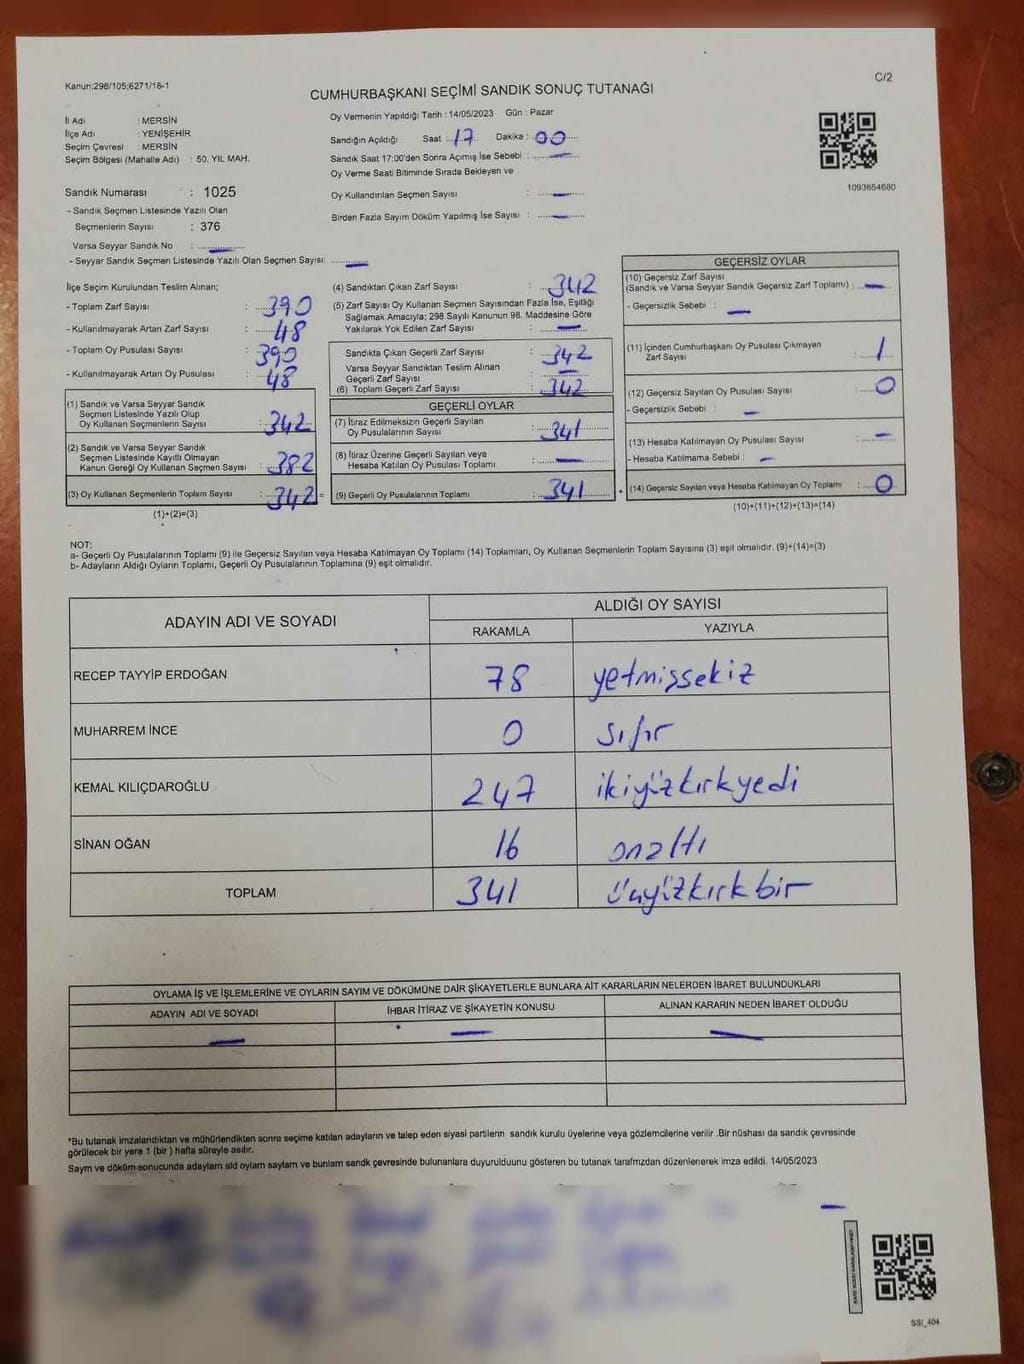 Kanun:298/105;6271/18-1
C/2
CUMHURBAŞKANI SEÇİMİ SANDIK SONUÇ TUTANAĞI
İl Adı : MERSİN
İlçe Adı : YENİŞEHİR
Seçim Çevresi : MERSİN
Seçim Bölgesi (Mahalle Adı) : 50. YIL MAH.
Sandık Numarası : 1025
- Sandık Seçmen Listesinde Yazılı Olan
Seçmenlerin Sayısı : 376
Varsa Seyyar Sandık No :
- Seyyar Sandık Seçmen Listesinde Yazılı Olan Seçmen Sayısı:
Oy Vermenin Yapıldığı Tarih : 14/05/2023 Gün : Pazar
Sandığın Açıldığı Saat : 17 Dakika : 00
Sandık Saat 17:00'den Sonra Açımış İse Sebebi :
Oy Verme Saati Bitiminde Sırada Bekleyen ve
Oy Kullandırılan Seçmen Sayısı : —
Birden Fazla Sayım Döküm Yapılmış İse Sayısı : —
1093654680
İlçe Seçim Kurulundan Teslim Alınan;
- Toplam Zarf Sayısı : 390
- Kullanılmayarak Artan Zarf Sayısı : 48
- Toplam Oy Pusulası Sayısı : 390
- Kullanılmayarak Artan Oy Pusulası : 48
(1) Sandık ve Varsa Seyyar Sandık
Seçmen Listesinde Yazılı Olup
Oy Kullanan Seçmenlerin Sayısı : 342
(2) Sandık ve Varsa Seyyar Sandık
Seçmen Listesinde Kayıtlı Olmayan
Kanun Gereği Oy Kullanan Seçmen Sayısı : 382
(3) Oy Kullanan Seçmenlerin Toplam Sayısı : 342 =
(1)+(2)=(3)
(4) Sandıktan Çıkan Zarf Sayısı : 342
(5) Zarf Sayısı Oy Kullanan Seçmen Sayısından Fazla İse, Eşitliği
Sağlamak Amacıyla; 298 Sayılı Kanunun 98. Maddesine Göre
Yakılarak Yok Edilen Zarf Sayısı : —
Sandıkta Çıkan Geçerli Zarf Sayısı : 342
Varsa Seyyar Sandıktan Teslim Alınan
Geçerli Zarf Sayısı : —
(6) Toplam Geçerli Zarf Sayısı : 342
GEÇERLİ OYLAR
(7) İtiraz Edilmeksizin Geçerli Sayılan
Oy Pusulalarının Sayısı : 341
(8) İtiraz Üzerine Geçerli Sayılan veya
Hesaba Katılan Oy Pusulası Toplamı : —
(9) Geçerli Oy Pusulalarının Toplamı : 341 +
GEÇERSİZ OYLAR
(10) Geçersiz Zarf Sayısı
(Sandık ve Varsa Seyyar Sandık Geçersiz Zarf Toplamı) : —
- Geçersizlik Sebebi : —
(11) İçinden Cumhurbaşkanı Oy Pusulası Çıkmayan
Zarf Sayısı : 1
(12) Geçersiz Sayılan Oy Pusulası Sayısı : 0
- Geçersizlik Sebebi : —
(13) Hesaba Katılmayan Oy Pusulası Sayısı : —
- Hesaba Katılmama Sebebi : —
(14) Geçersiz Sayılan veya Hesaba Katılmayan Oy Toplamı : 0
(10)+(11)+(12)+(13)=(14)
NOT:
a- Geçerli Oy Pusulalarının Toplamı (9) ile Geçersiz Sayılan veya Hesaba Katılmayan Oy Toplamı (14) Toplamları, Oy Kullanan Seçmenlerin Toplam Sayısına (3) eşit olmalıdır. (9)+(14)=(3)
b- Adayların Aldığı Oyların Toplamı, Geçerli Oy Pusulalarının Toplamına (9) eşit olmalıdır.
ADAYIN ADI VE SOYADI ALDIĞI OY SAYISI
RAKAMLA YAZIYLA
RECEP TAYYİP ERDOĞAN 78 yetmişsekiz
MUHARREM İNCE 0 sıfır
KEMAL KILIÇDAROĞLU 247 ikiyüzkırkyedi
SİNAN OĞAN 16 onaltı
TOPLAM 341 üçyüzkırkbir
OYLAMA İŞ VE İŞLEMLERİNE VE OYLARIN SAYIM VE DÖKÜMÜNE DAİR ŞİKAYETLERLE BUNLARA AİT KARARLARIN NELERDEN İBARET BULUNDUKLARI
ADAYIN ADI VE SOYADI İHBAR İTİRAZ VE ŞİKAYETİN KONUSU ALINAN KARARIN NEDEN İBARET OLDUĞU
— — —
*Bu tutanak imzalandıktan ve mühürlendikten sonra seçime katılan adayların ve talep eden siyasi partilerin sandık kurulu üyelerine veya gözlemcilerine verilir .Bir nüshası da sandık çevresinde
görülecek bir yere 1 (bir ) hafta süreyle asılır.
Sayım ve döküm sonucunda adaylam ald oylam saylam ve bunlam sandk çevresinde bulunanlara duyurulduunu gösteren bu tutanak tarafmzdan düzenlenerek imza edildi. 14/05/2023
SSI_404